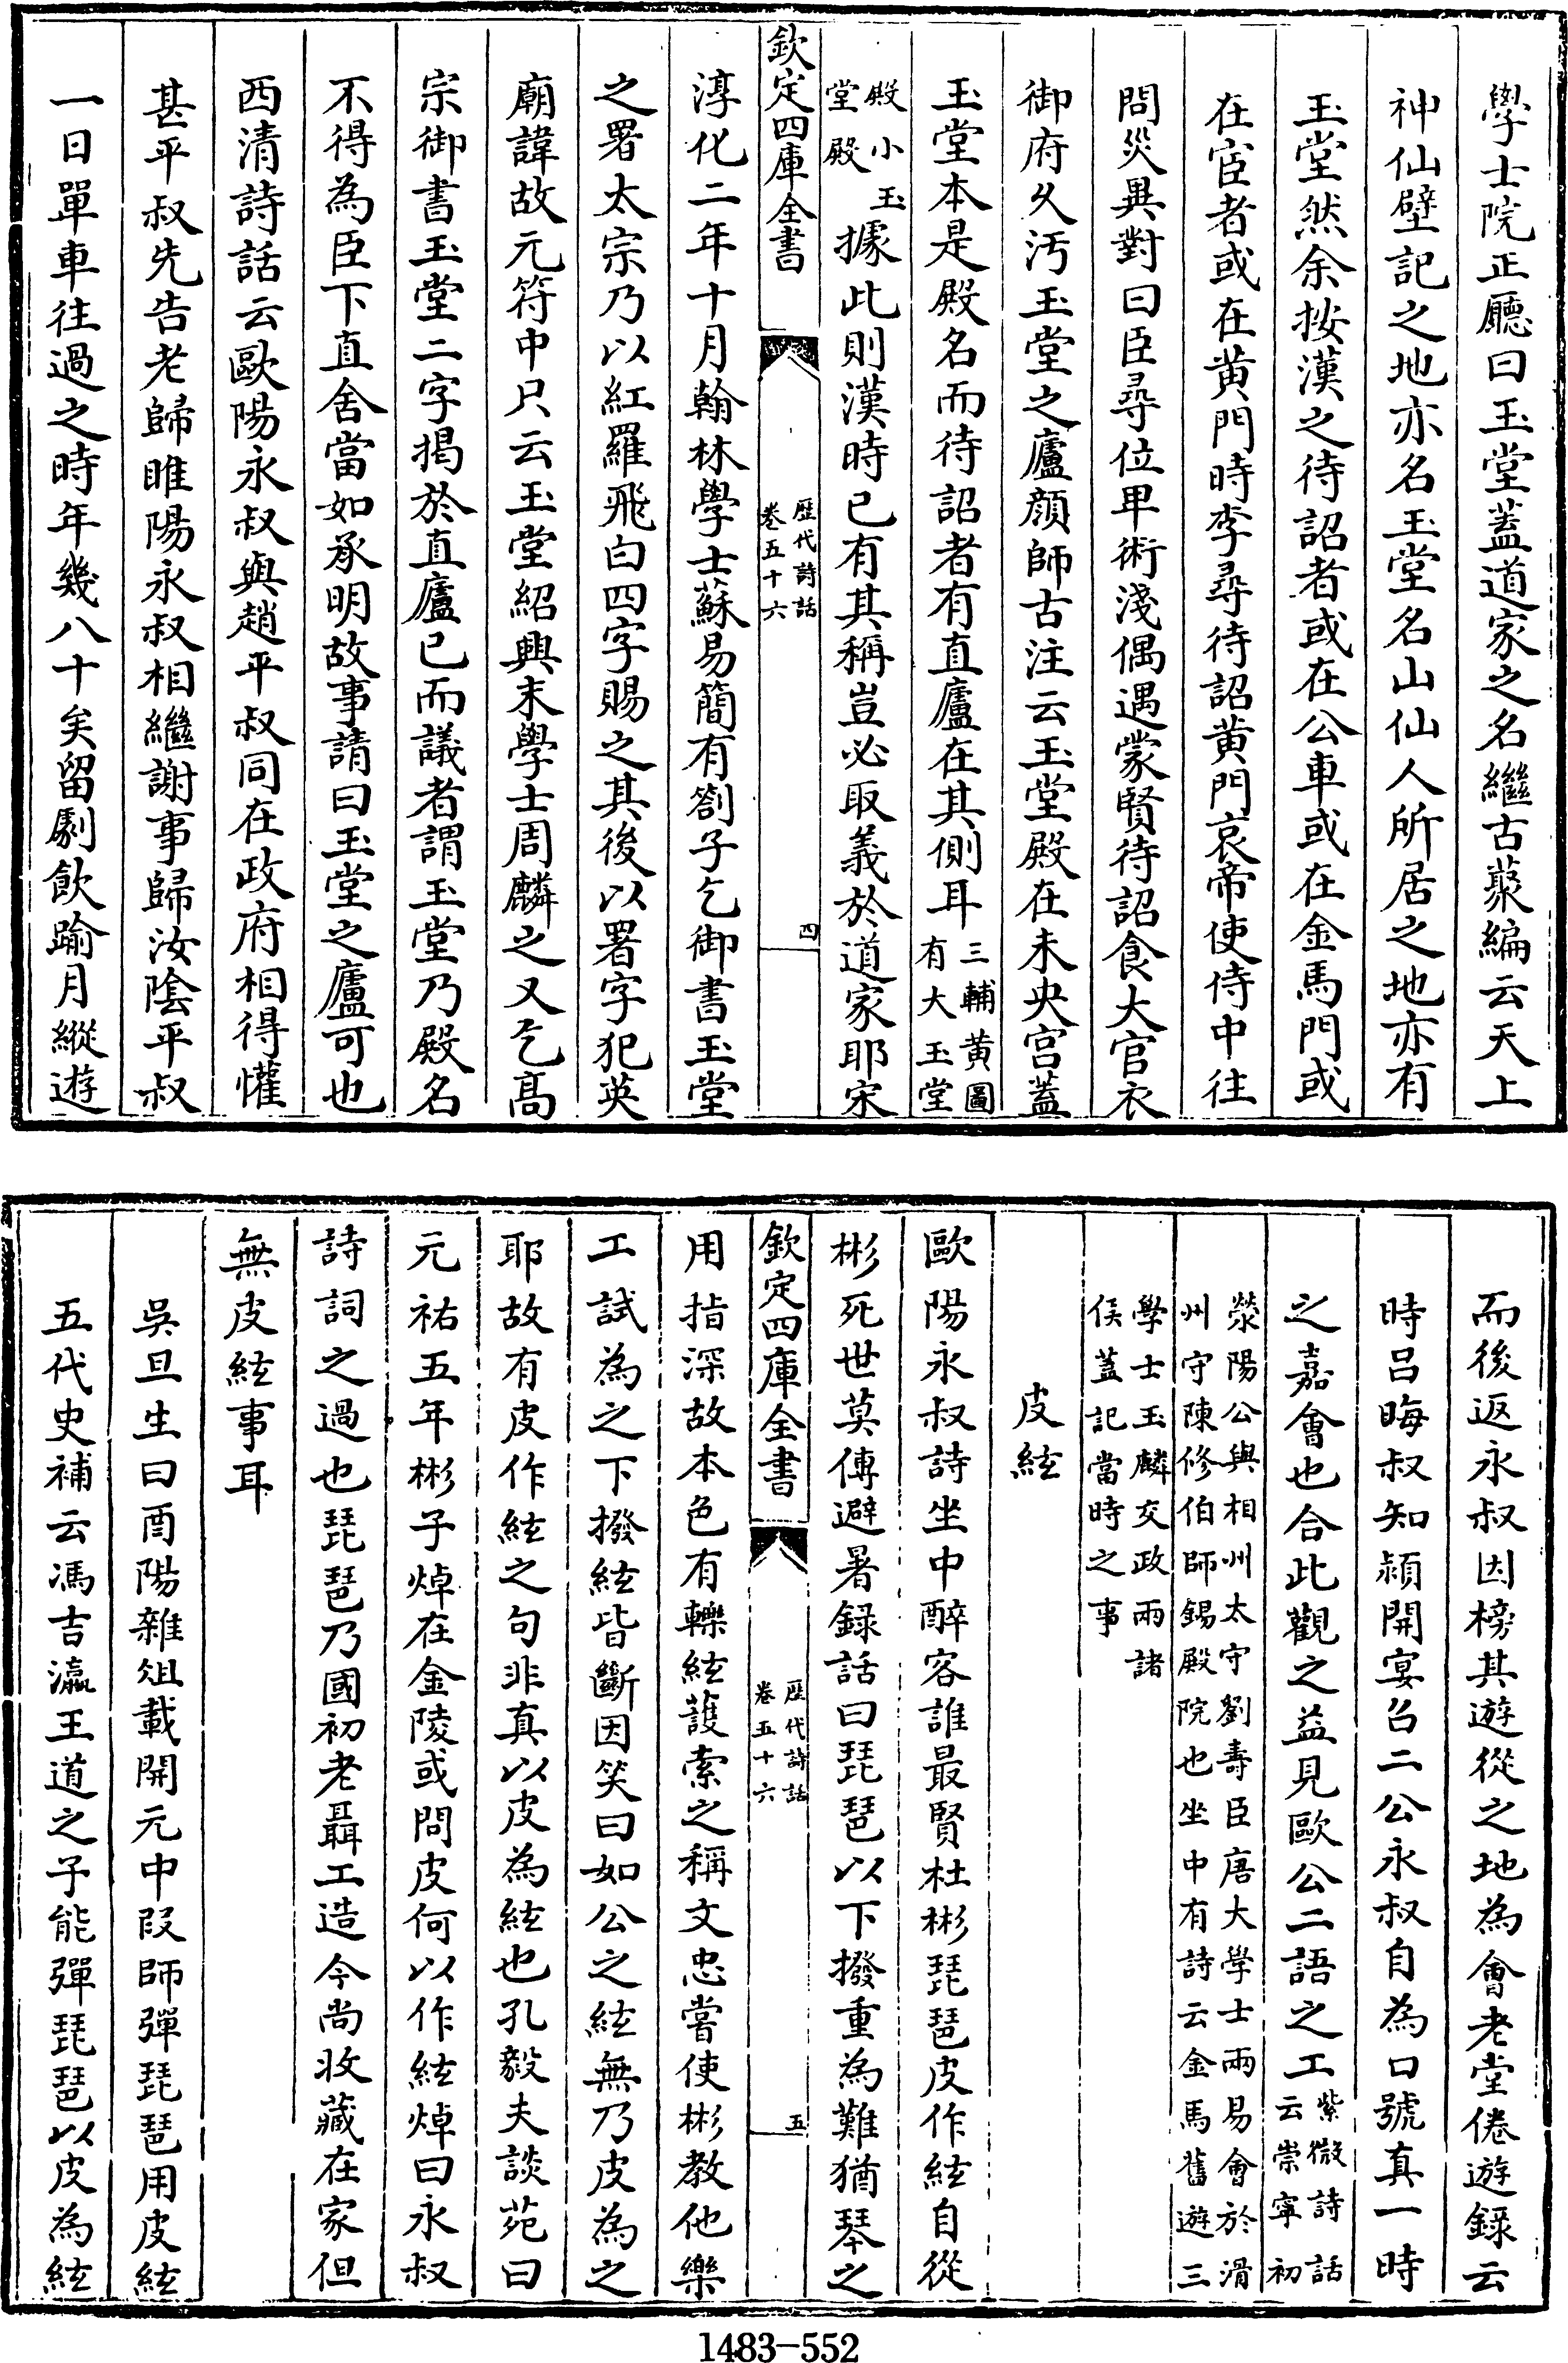 學士院正廳曰玉堂蓋道家之名繼古藂編云天上
神仙壁記之地亦名玉堂名山仙人所居之地亦有
玉堂然余按漢之待詔者或在公車或在金馬門或
在宦者或在黄門時李尋待詔黄門哀帝使侍中往
問災異對曰臣尋位甲術淺偶遇蒙賢待詔食大官衣
御府乆汚玉堂之廬顔師古注云玉堂殿在未央宫蓋
玉堂本是殿名而待詔者有直廬在其側耳三輔黄圖
有大玉堂
殿小玉
堂殿據此則漢時已有其稱豈必取義於道家耶宋
欽定四庫全書
歴代詩話
卷五十六
四
淳化二年十月翰林學士蘇易簡有劄子乞御書玉堂
之署太宗乃以紅羅飛白四字賜之其後以署字犯英
廟諱故元符中只云玉堂紹興末學士周麟之又乞髙
宗御書玉堂二字揭於直廬已而議者謂玉堂乃殿名
不得為臣下直舍當如承明故事請曰玉堂之廬可也
西清詩話云歐陽永叔與趙平叔同在政府相得懽
甚平叔先告老歸睢陽永叔相繼謝事歸汝隂平叔
一日單車往過之時年幾八十矣留劇飲踰月縱遊
而後返永叔因榜其遊從之地為會老堂倦遊録云
時吕晦叔知潁開宴召二公永叔自為口號真一時
之嘉會也合此觀之益見歐公二語之工紫微詩話
云崇寧初
滎陽公與相州太守劉壽臣唐大學士兩易會於滑
州守陳修伯師錫殿院也坐中有詩云金馬舊遊三
學士玉麟交政兩諸
侯蓋記當時之事
皮絃
歐陽永叔詩坐中醉客誰最賢杜彬琵琶皮作絃自從
彬死世莫傳避暑録話曰琵琶以下撥重為難猶琴之
欽定四庫全書
歴代詩話
卷五十六
五
用指深故本色有轢絃䕶索之稱文忠嘗使彬教他樂
工試為之下撥絃皆斷因笑曰如公之絃無乃皮為之
耶故有皮作絃之句非真以皮為絃也孔毅夫談苑曰
元祐五年彬子焯在金陵或問皮何以作絃焯曰永叔
詩詞之過也琵琶乃國初老聶工造今尚收藏在家但
無皮絃事耳
吳旦生曰酉陽雜俎載開元中段師彈琵琶用皮絃
五代史補云馮吉瀛王道之子能彈琵琶以皮為絃
1483-552